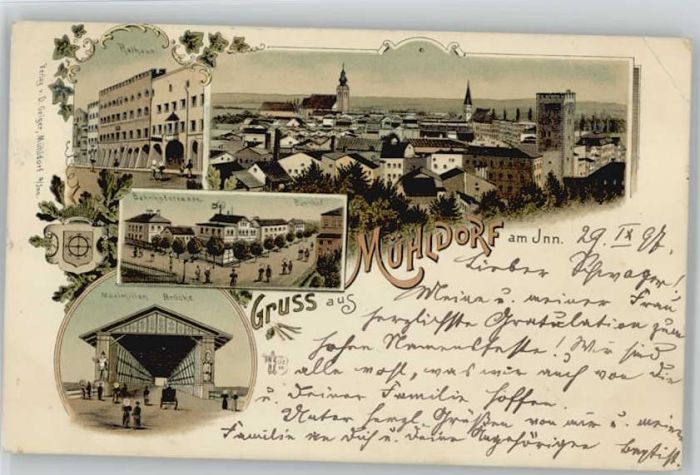 Rathaus.
Verlag v. D. Geiger, Mühldorf a/Inn.
Bahnhofstrasse.
Bahnhof.
Maximilian Brücke.
Gruss aus Mühldorf am Inn.
29. IX 97.
Lieber Schwager!
Meine u. meiner Frau
herzlichste Gratulation zum
hohen Namensfeste! Wir sind
alle wohl, was wir auch von Dir
u. Deiner Familie hoffen.
Unter herzl. Grüßen von mir u. meiner
Familie an Dich u. Deine Angehörigen